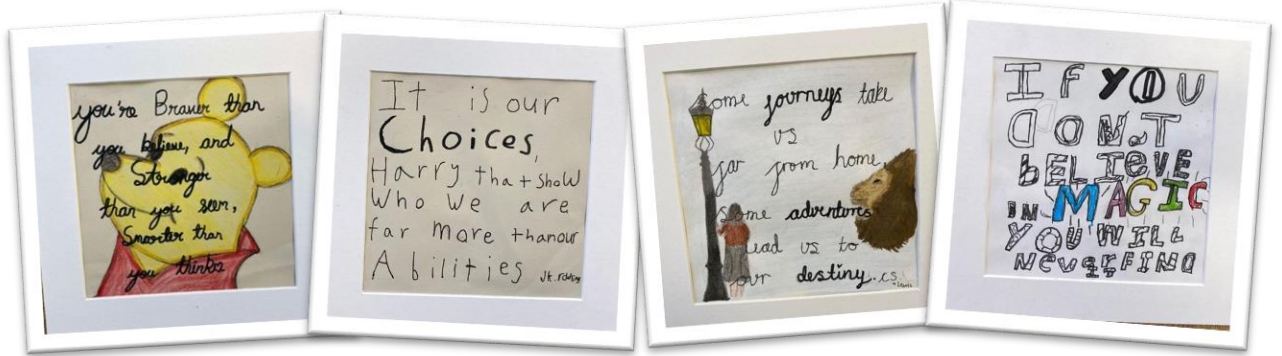 you're Braver than
you believe, and
Stronger
than you seem,
Smarter than
you thinks
It is our
Choices,
Harry that Show
Who we are
far more than our
Abilities J.K. rowling
Some journeys take
us
far from home,
Some adventures
lead us to
our destiny. c.s. Lewis
IF YOU
DON'T
BELIEVE
IN MAGIC
YOU WILL
NEVER FIND